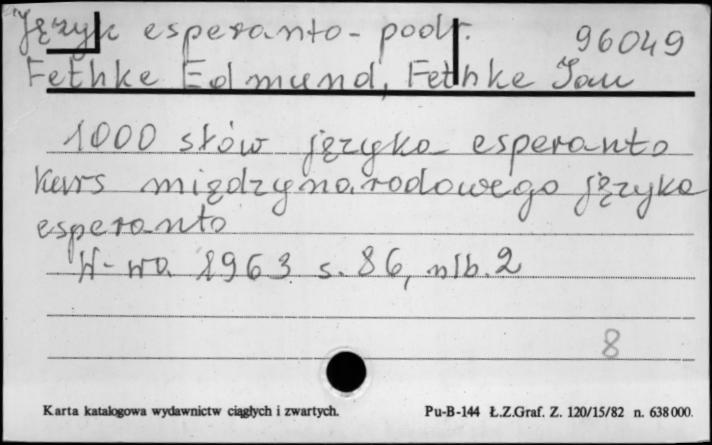 Język esperanto - podr.
96049
Fethke Edmund, Fethke Jan
1000 słów języka esperanto
kurs międzynarodowego języka
esperanto
W-wa 1963 s. 86, nlb. 2
8
Karta katalogowa wydawnictw ciągłych i zwartych.
Pu-B-144 Ł.Z.Graf. Z. 120/15/82 n. 638 000.